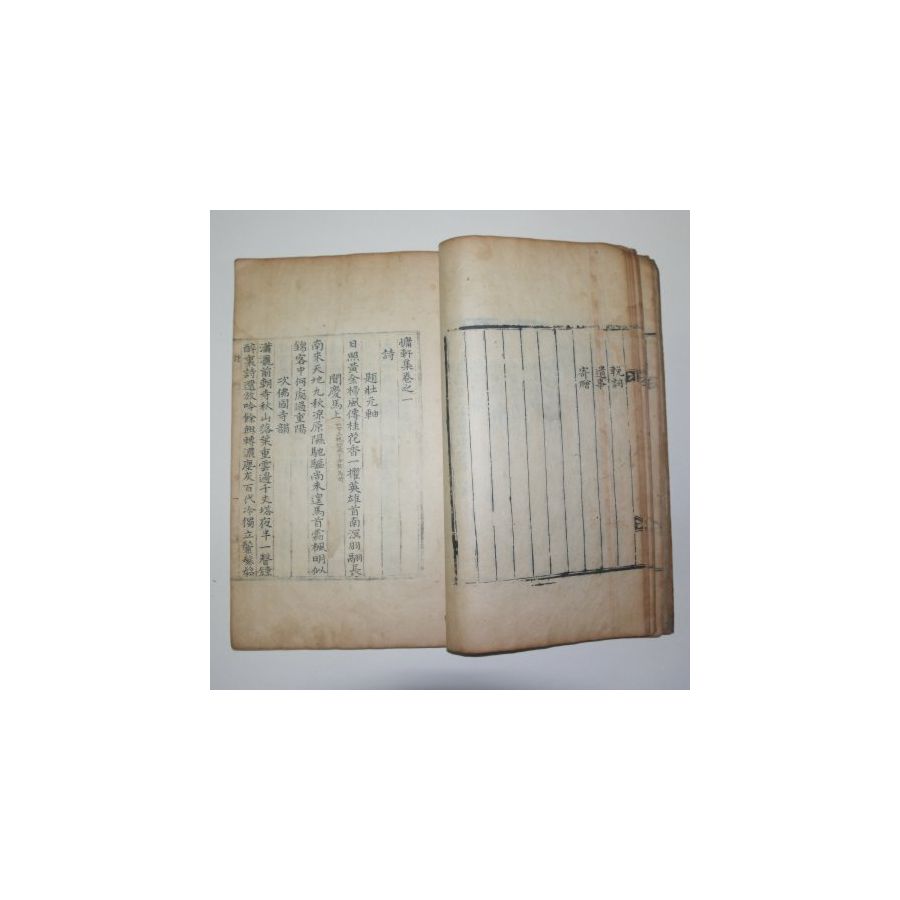 輓詞
遺事
寄贈
慵軒集卷之一
詩
題壯元軸
日照黃金榜風傳桂花香一擢英雄首南溟朋翮長
聞慶馬上
南來天地九秋凉原隰馳驅尚未遑馬首霜楓明似
錦客中何處過重陽
次佛國寺韻
瀟灑前朝寺秋山落葉重雲邊千丈塔夜半一聲鍾
醉裏詩還放吟餘興轉濃塵灰百代冷獨立鬢